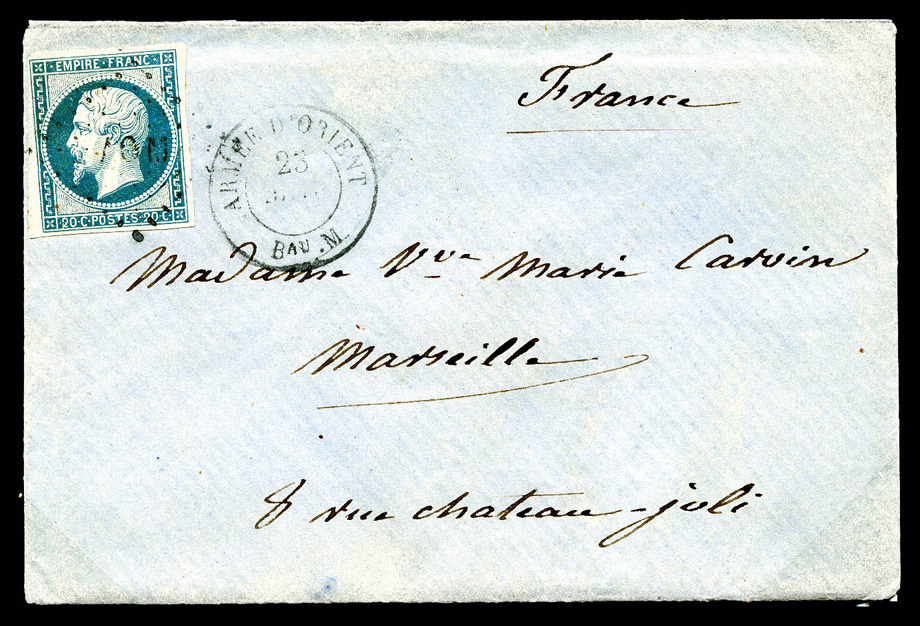 EMPIRE FRANC
20·C·POSTES·20·C
ARMÉE D'ORIENT
BAU .M.
France
Madame Vve Marie Carvin
Marseille
8 rue chateau-joli